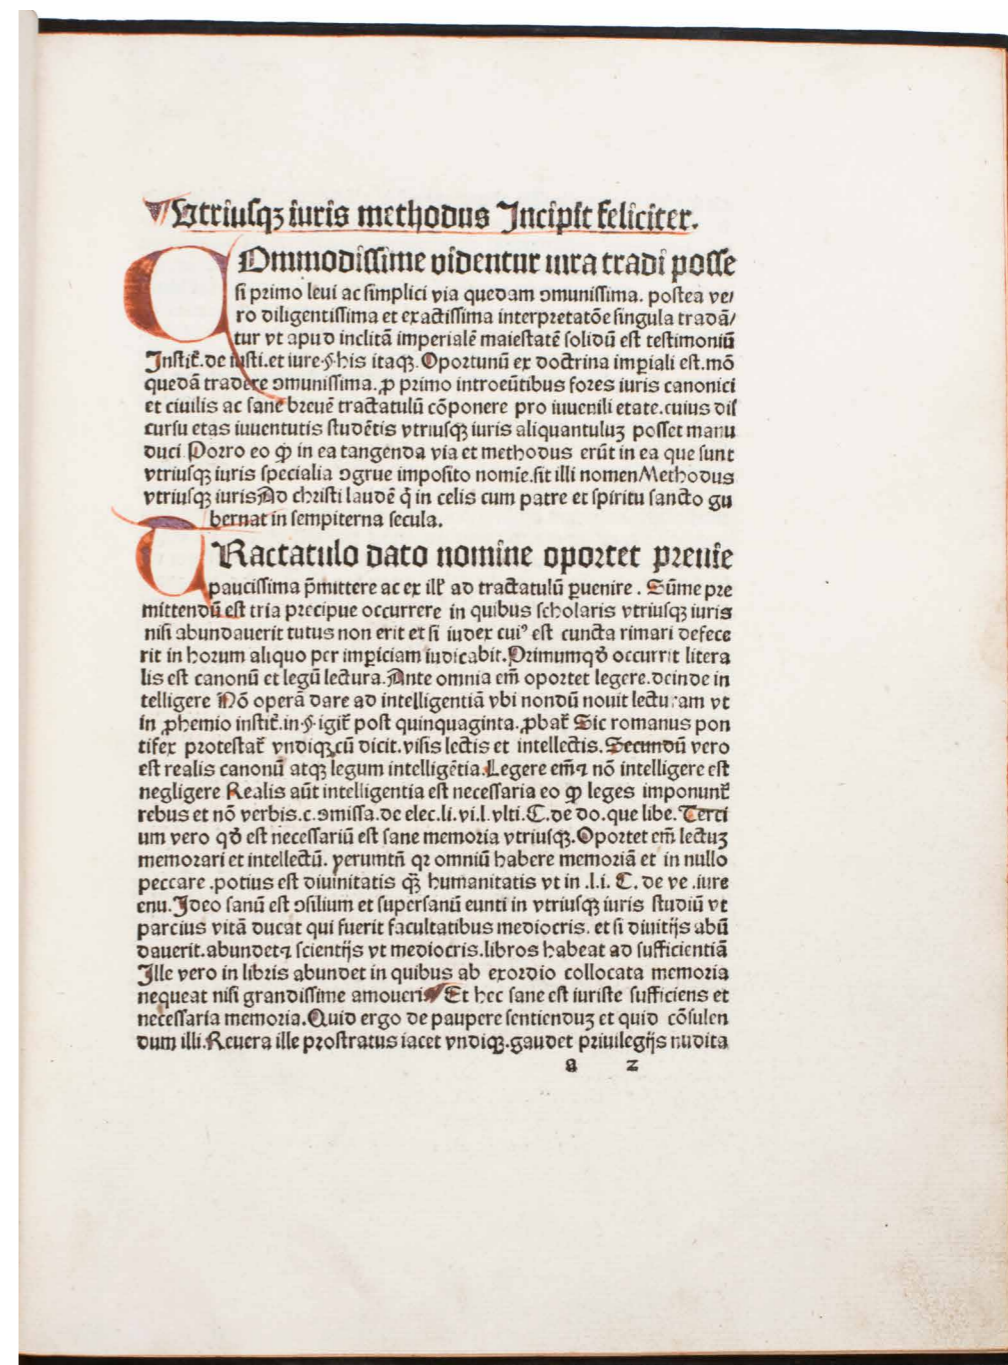 Vtriusqꝫ iuris methodus Incipit feliciter.
COmmodissime videntur iura tradi posse
si primo leui ac simplici via quedam ꝯmunissima. postea ve/
ro diligentissima et exactissima interpretatõe singula tradã/
tur vt apud inclitã imperialẽ maiestatẽ solidũ est testimoniũ
Instit̃. de iusti. et iure. §. his itaqꝫ. Oportunũ ex doctrina imꝑiali est. mõ
quedã tradere ꝯmunissima. ꝓ primo introeũtibus fores iuris canonici
et ciuilis ac sane breuẽ tractatulũ cõponere pro iuuenili etate. cuius dis
cursu etas iuuentutis studẽtis vtriusqꝫ iuris aliquantuluꝫ posset manu
duci Porro eo ꝙ in ea tangenda via et methodus erũt in ea que sunt
vtriusqꝫ iuris specialia ꝯgrue imposito nomĩe. sit illi nomen Methodus
vtriusqꝫ iuris Ad christi laudẽ q̃ in celis cum patre et spiritu sancto gu
bernat in sempiterna secula.
TRactatulo dato nomine oportet preuie
paucissima p̃mittere ac ex illꝭ ad tractatulũ ꝑuenire. Sũme pre
mittendũ est tria precipue occurrere in quibus scholaris vtriusqꝫ iuris
nisi abundauerit tutus non erit et si iudex cuiꝰ est cuncta rimari defece
rit in horum aliquo per imꝑiciam iudicabit. Primumqꝺ̃ occurrit litera
lis est canonũ et legũ lectura. Ante omnia em̃ oportet legere. deinde in
telligere Nõ operã dare ad intelligentiã vbi nondũ nouit lecturam vt
in ꝓhemio instit̃. in. §. igit̃ post quinquaginta. ꝓbat̃ Sic romanus pon
tifex protestat̃ vndiqꝫ cũ dicit. visis lectis et intellectis. Secundũ vero
est realis canonũ atqꝫ legum intelligẽtia. Legere em̃ ⁊ nõ intelligere est
negligere Realis aũt intelligentia est necessaria eo ꝙ leges imponunt̃
rebus et nõ verbis. c. ꝯmissa. de elec. li. vi. l. vlti. C. de do. que libe. Terci
um vero qꝺ̃ est necessariũ est sane memoria vtriusqꝫ. Oportet em̃ lectuꝫ
memorari et intellectũ. verumtñ qꝛ omniũ habere memoriã et in nullo
peccare. potius est diuinitatis qꝫ̃ humanitatis vt in .l. i. C. de ve. iure
enu. Ideo sanũ est ꝯsilium et supersanũ eunti in vtriusqꝫ iuris studiũ vt
parcius vitã ducat qui fuerit facultatibus mediocris. et si diuitijs abũ
dauerit. abundet ⁊ scientijs vt mediocris. libros habeat ad sufficientiã
Ille vero in libris abundet in quibus ab exordio collocata memoria
nequeat nisi grandissime amoueri Et hec sane est iuriste sufficiens et
necessaria memoria. Quid ergo de paupere sentienduꝫ et quid cõsulen
dum illi. Reuera ille prostratus iacet vndiqꝫ. gaudet priuilegijs nudita
a 2